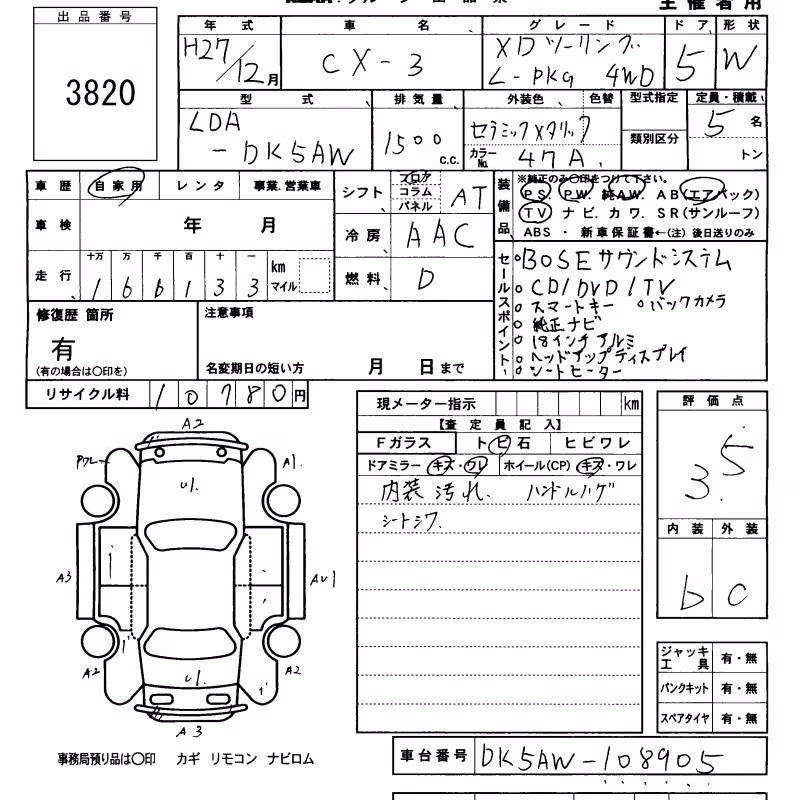 主催者用
出品番号
3820
年式 車名 グレード ドア 形状
H27/12月 CX-3 XDツーリング L-PKG 4WD 5 W
型式 排気量 外装色 色替 型式指定 定員・積載
LDA-DK5AW 1500 c.c. セラミックメタリック 類別区分 5 名
カラーNo. 47A トン
車歴 自家用 レンタ 事業.営業車
シフト フロア コラム パネル AT
装備品 ※純正のみ〇印をつけて下さい。
P S. P W. 純A W. A B (エアバック)
T V ナ ビ. カ ワ. S R (サンルーフ)
ABS ・ 新車保証書←(注) 後日送りのみ
車検 年 月
冷房 AAC
走行 十万 万 千 百 十 一
166133 km マイル
燃料 D
セールスポイント
BOSEサウンドシステム
CD/DVD/TV
スマートキー バックカメラ
純正ナビ
18インチアルミ
ヘッドアップディスプレイ
シートヒーター
修復歴 箇所
有
(有の場合は〇印を)
注意事項
名変期日の短い方 月 日まで
リサイクル料 10780円
現メーター指示 km
【査定員記入】
Fガラス トビ石 ヒビワレ
ドアミラー キズ・ワレ ホイール(CP) キズ・ワレ
内装汚れ. ハンドルハゲ
シートシワ.
評価点
3.5
内装 外装
b c
A2
A1.
U1.
A3
AU1
A2
A2
U1.
A3
ジャッキ工具 有・無
パンクキット 有・無
スペアタイヤ 有・無
事務局預り品は〇印 カギ リモコン ナビロム
車台番号 DK5AW-108905